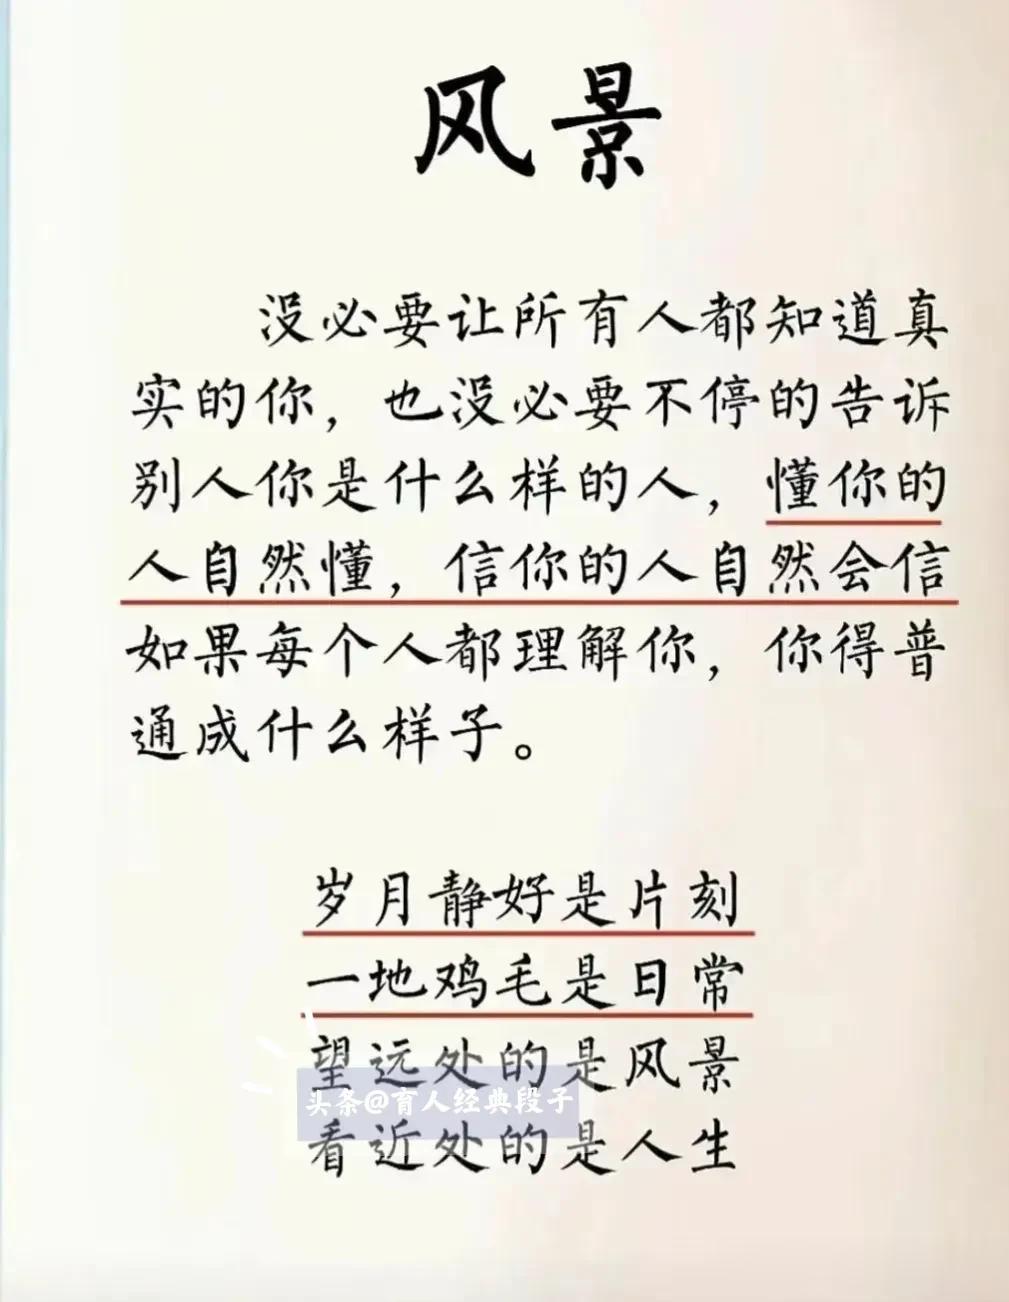 风景
没必要让所有人都知道真
实的你，也没必要不停的告诉
别人你是什么样的人，懂你的
人自然懂，信你的人自然会信
如果每个人都理解你，你得普
通成什么样子。
岁月静好是片刻
一地鸡毛是日常
望远处的是风景
头条@育人经典段子
看近处的是人生